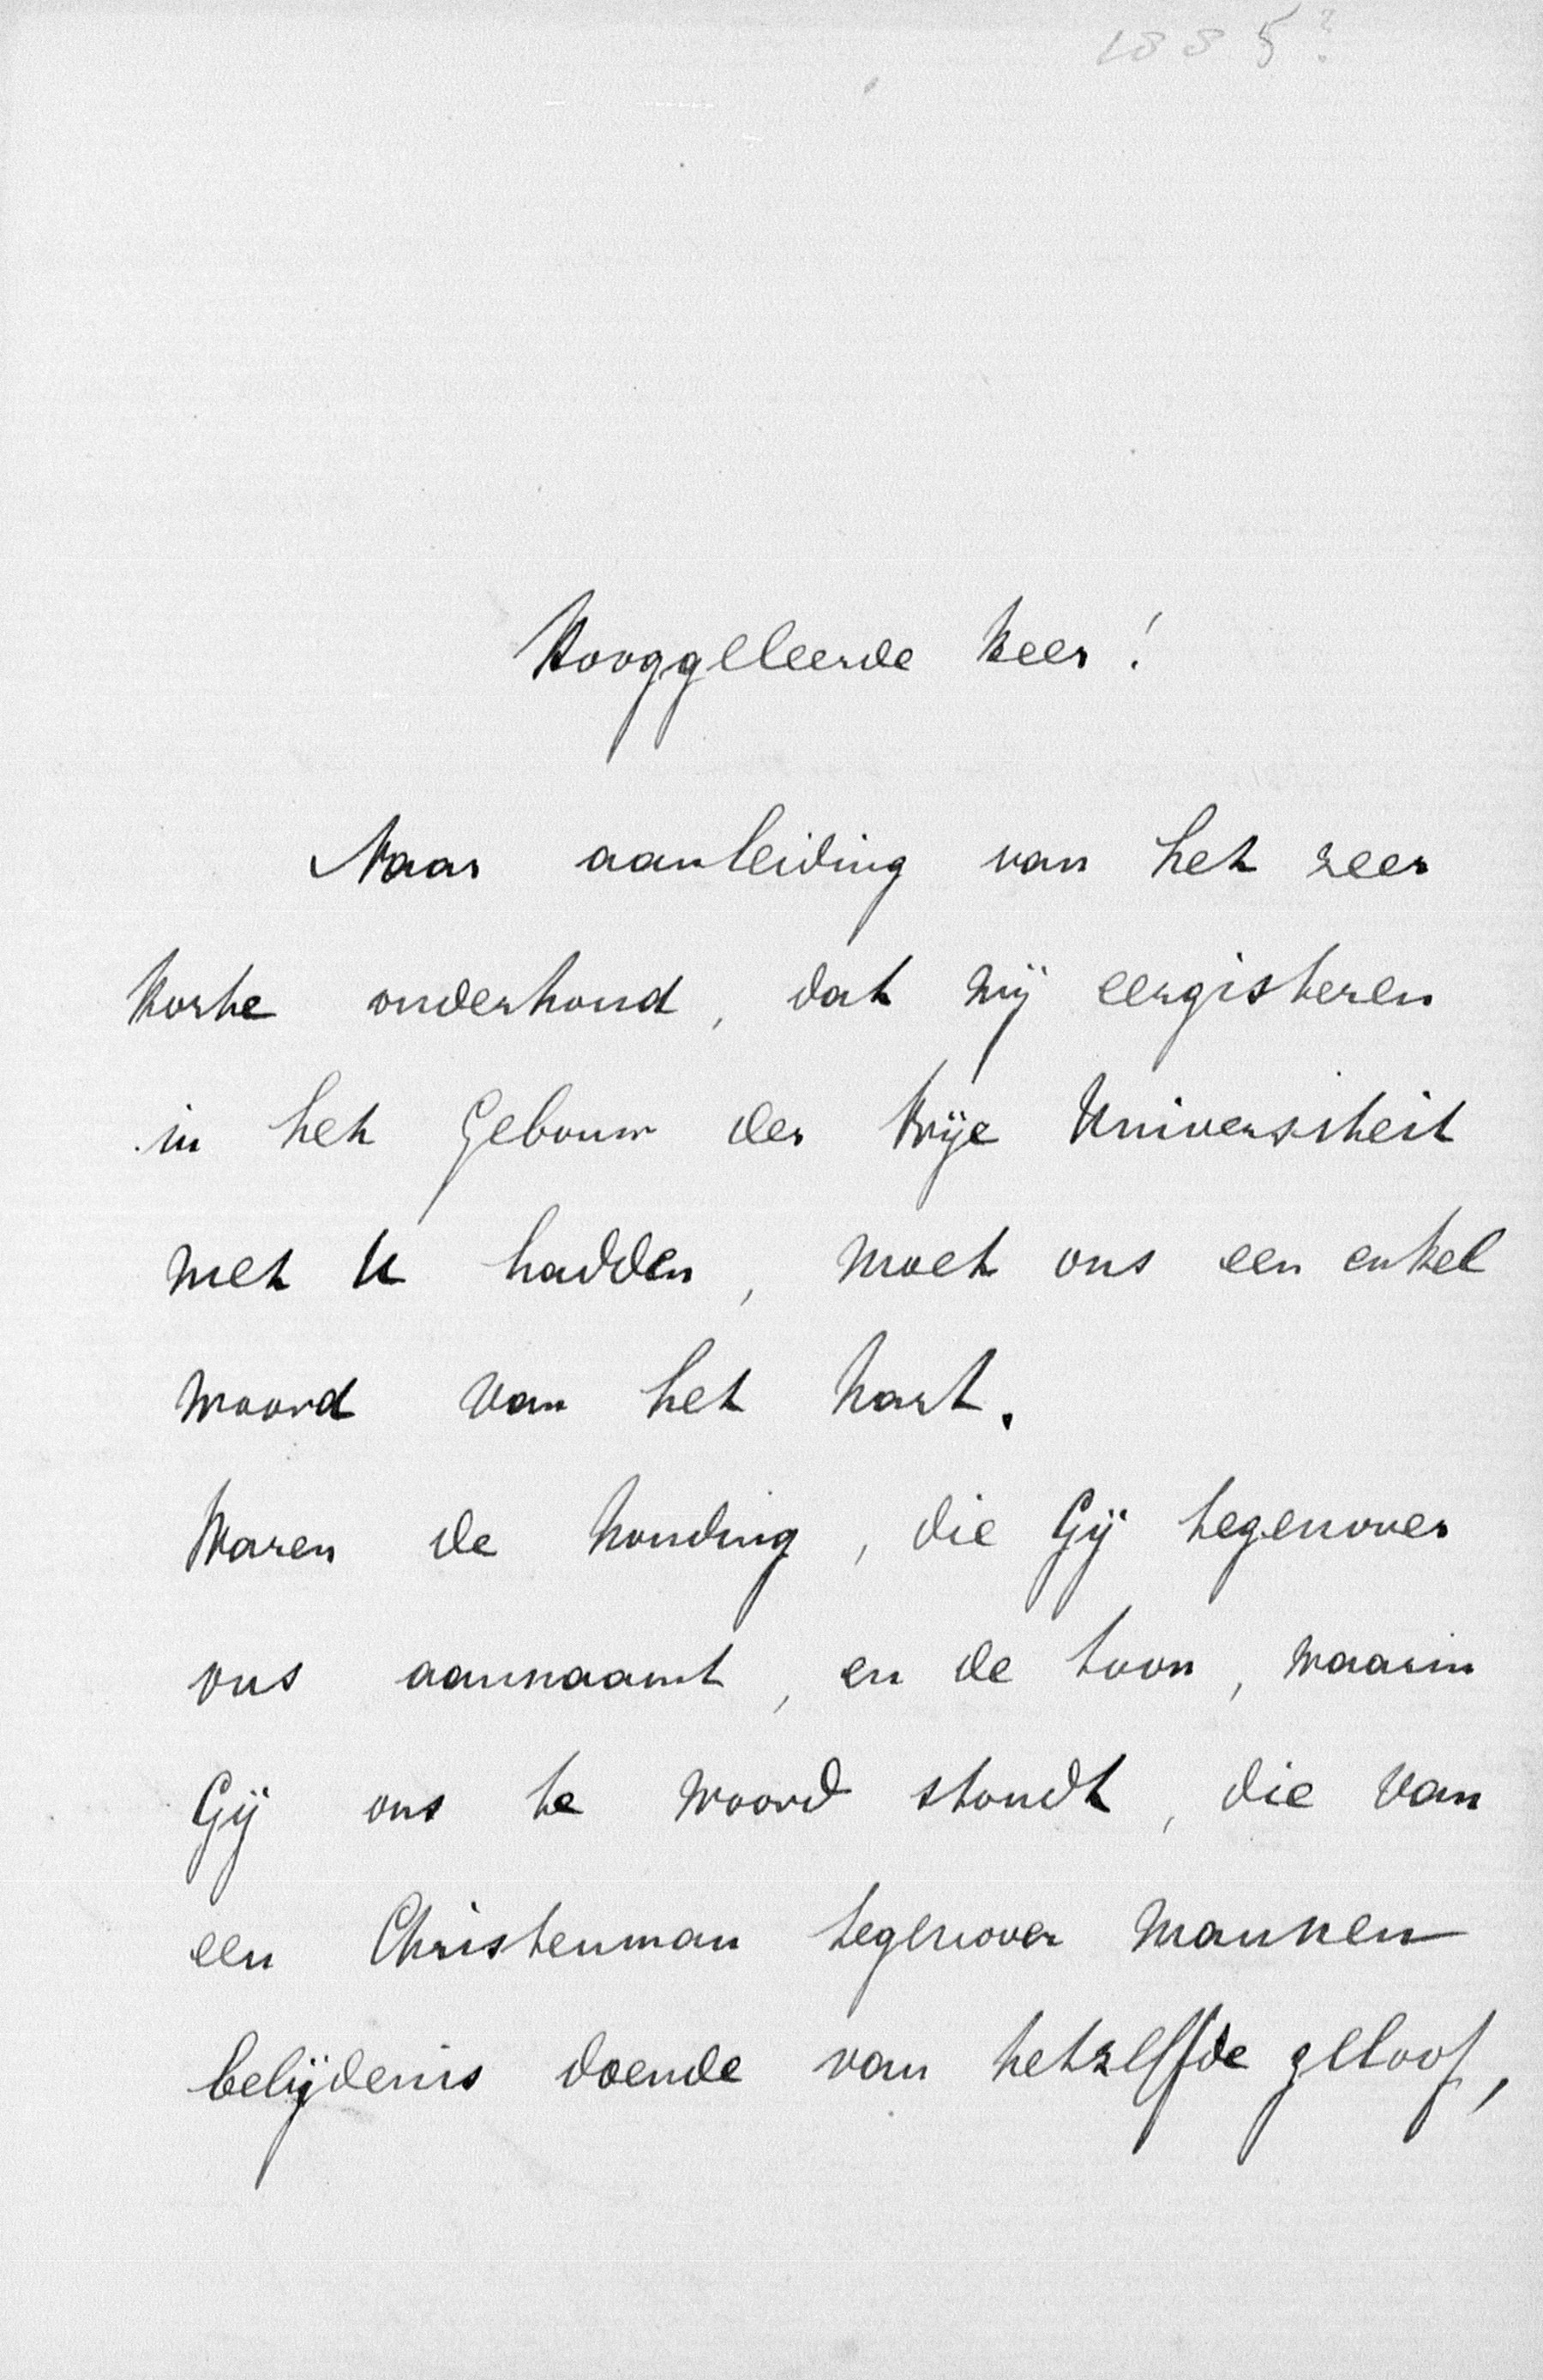 1885?
Hooggeleerde Heer!
Naar aanleiding van het zeer
korte onderhoud, dat wij eergisteren
in het Gebouw der Vrije Universiteit
met U hadden, moet ons een enkel
woord van het hart.
Waren de houding, die Gij tegenover
ons aannaamt, en de toon, waarin
Gij ons te woord stondt, die van
een Christenman tegenover mannen
belijdenis doende van hetzelfde geloof,